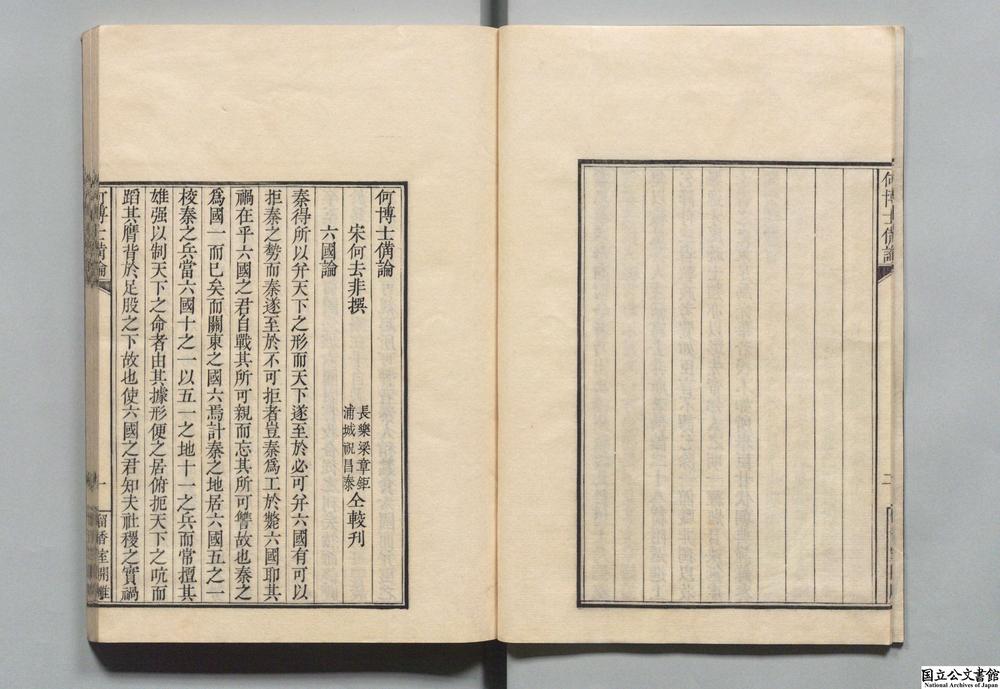 何博士僃論
二
何博士僃論
宋何去非撰
長樂梁章鉅
浦城祝昌泰
仝較刊
六國論
秦得所以弁天下之形而天下遂至於必可弁六國有可以
拒秦之勢而秦遂至於不可拒者豈秦爲工於斃六國耶其
禍在乎六國之君自戰其所可親而忘其所可讐故也秦之
爲國一而已矣而關東之國六焉計秦之地居六國五之一
校秦之兵當六國十之一以五一之地十一之兵而常擅其
雄强以制天下之命者由其據形便之居俯扼天下之吭而
蹈其膺背於足股之下故也使六國之君知夫社稷之實禍
何博士僃論
一
留香室開雕
国立公文書館
National Archives of Japan